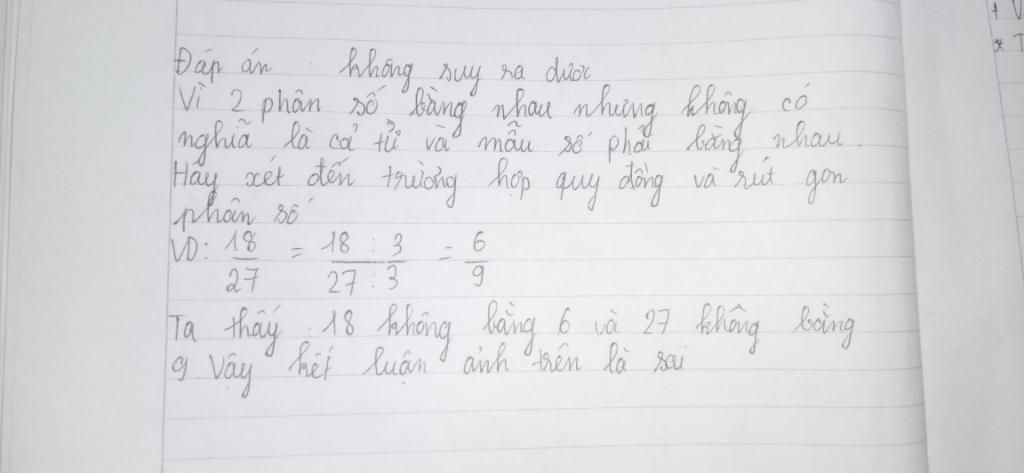 Đáp án : không suy ra được
Vì 2 phân số bằng nhau nhưng không có
nghĩa là cả tử và mẫu số phải bằng nhau.
Hãy xét đến trường hợp quy đồng và rút gọn
phân số
VD: 18/27 = 18 : 3/27 : 3 = 6/9
Ta thấy : 18 không bằng 6 và 27 không bằng
9. Vậy kết luận ảnh trên là sai